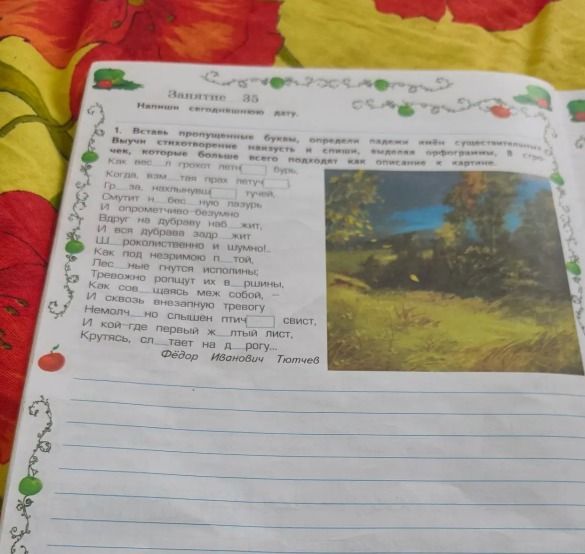 Занятие 35
Напиши сегодняшнюю дату.
1. Вставь пропущенные буквы, определи падежи имён существительных.
Выучи стихотворение наизусть и спиши, выделяя орфограммы, 8 стро-
чек, которые больше всего подходят как описание к картине.
Как вес__л грохот летн бурь,
Когда, взм__тая прах летуч ,
Гр__за, нахлынувш тучей,
Смутит н__бес__ную лазурь
И опрометчиво-безумно
Вдруг на дубраву наб__жит,
И вся дубрава задр__жит
Ш__роколиственно и шумно!..
Как под незримою п__той,
Лес__ные гнутся исполины;
Тревожно ропщут их в__ршины,
Как сов__щаясь меж собой, –
И сквозь внезапную тревогу
Немолч__но слышен птич свист,
И кой-где первый ж__лтый лист,
Крутясь, сл__тает на д__рогу...
Фёдор Иванович Тютчев